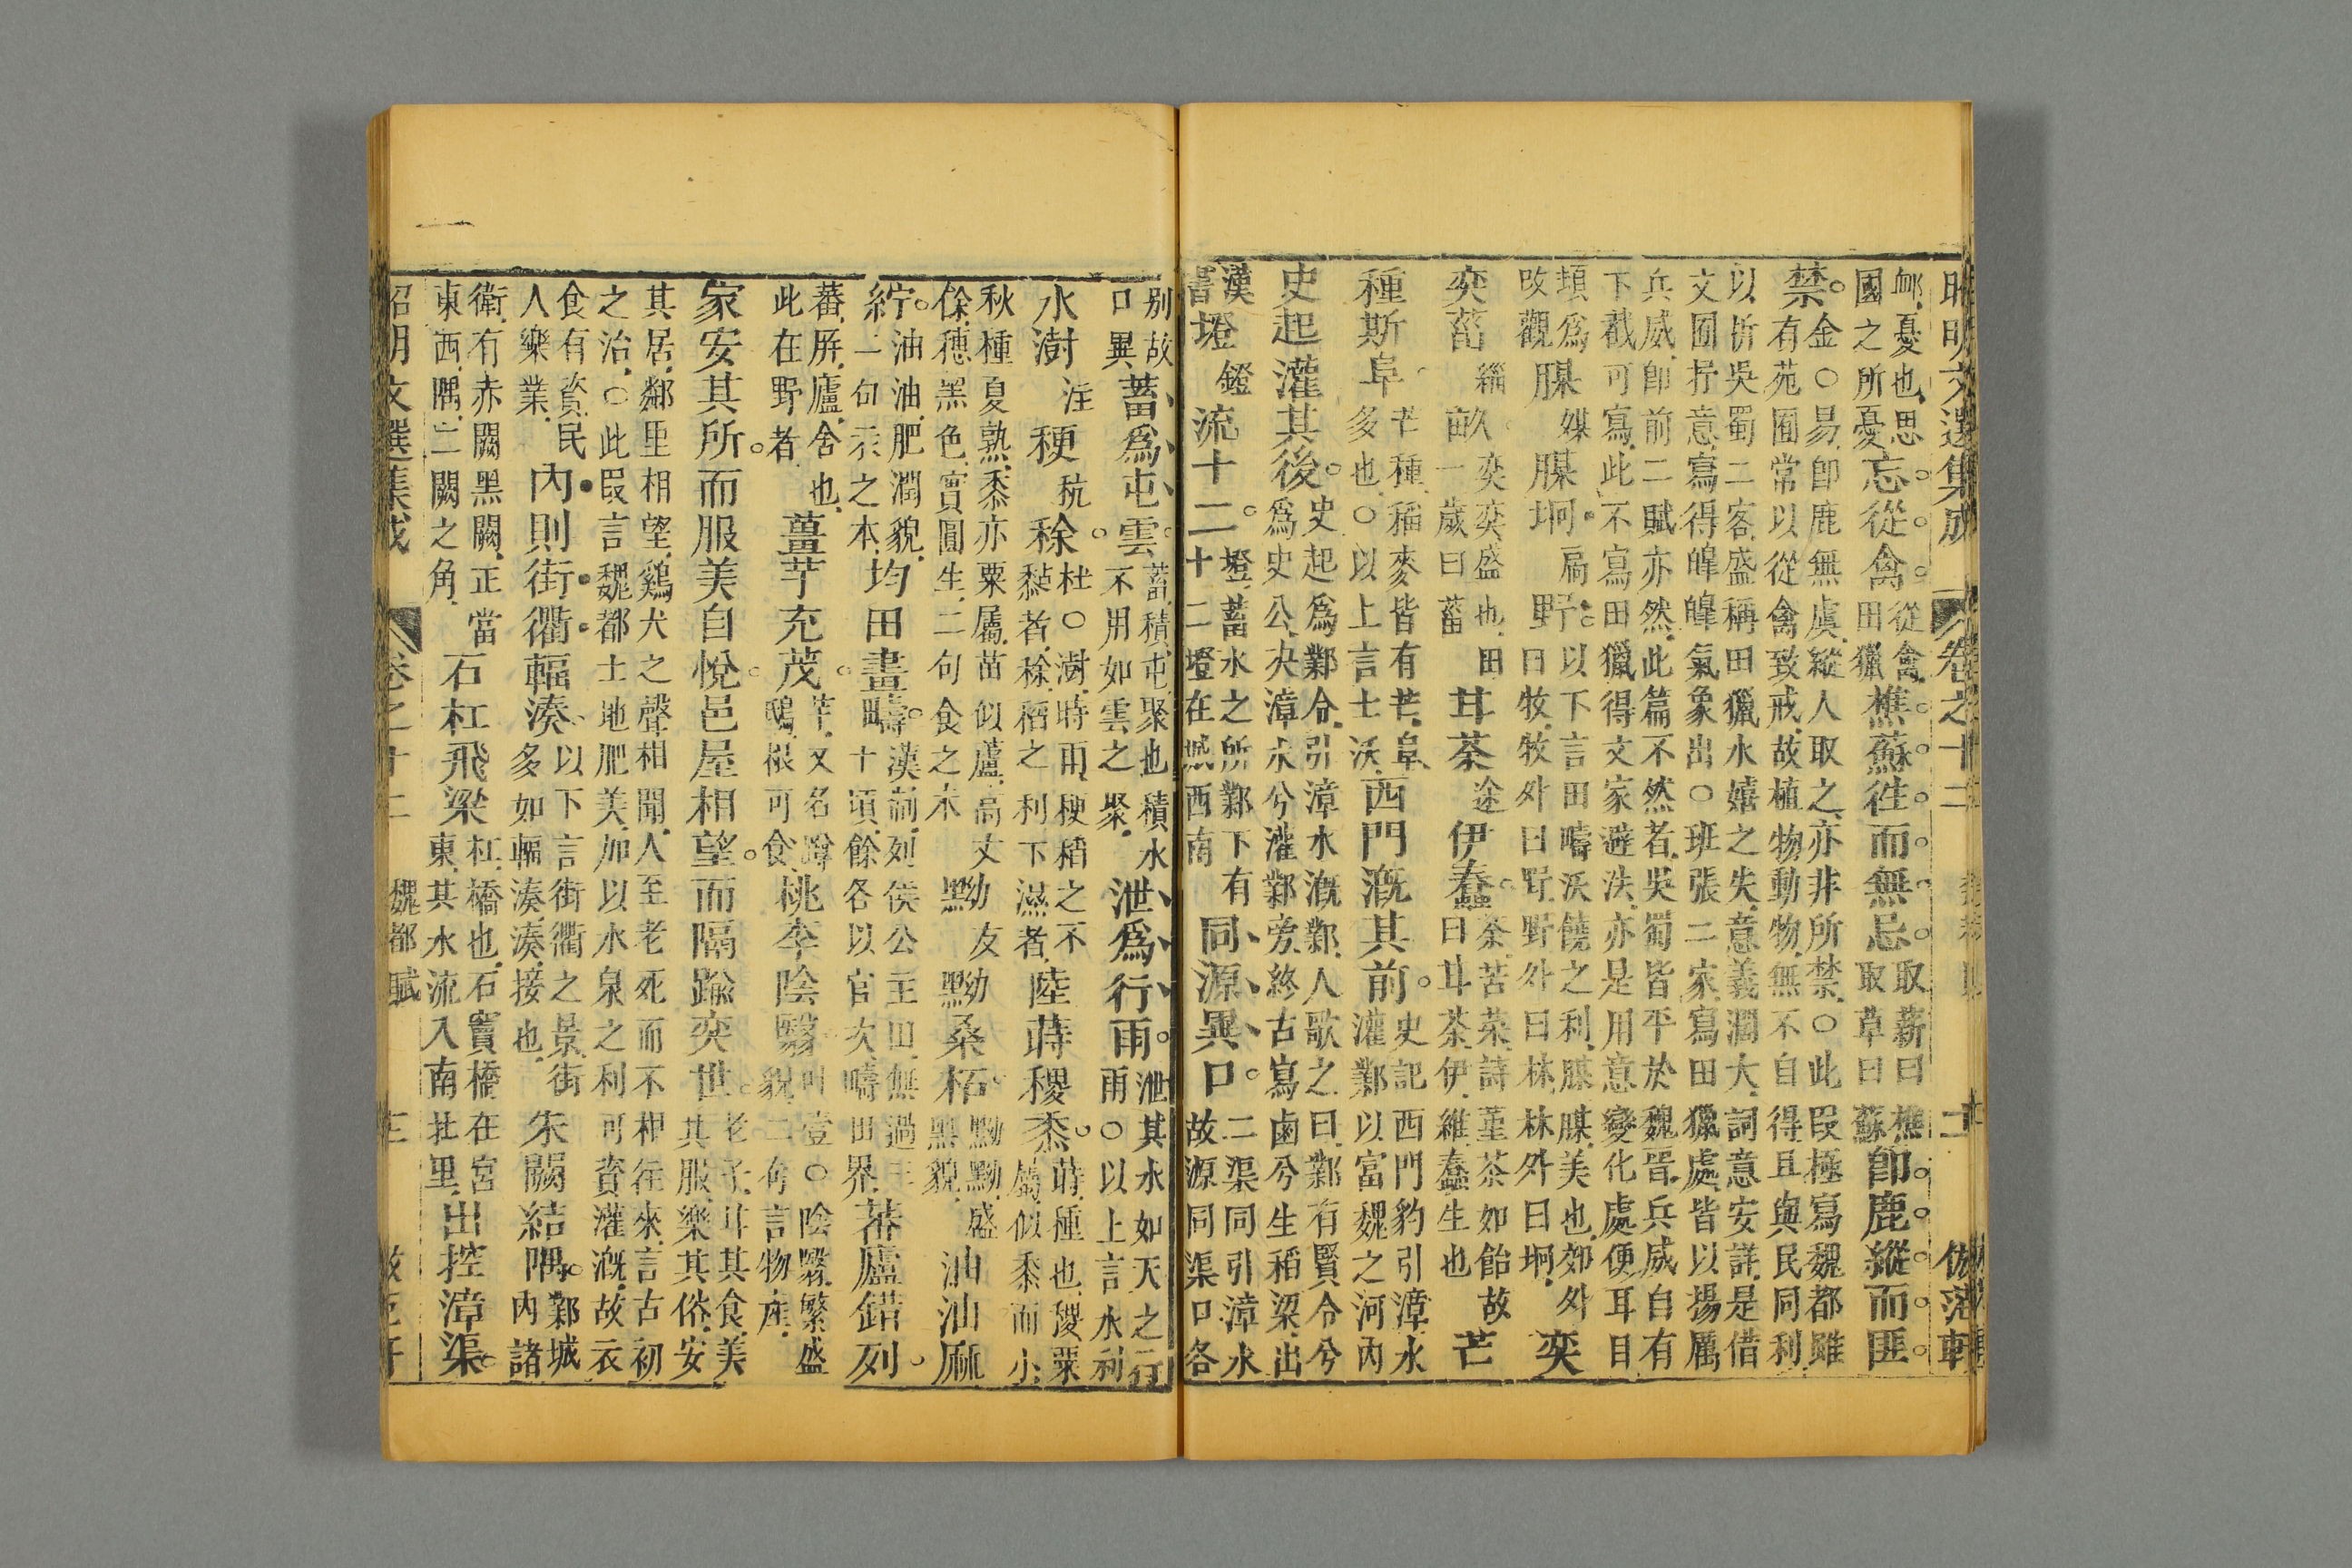 昭明文選集成　卷之十二　十二　倣范軒
卹憂也思國之所憂忘從禽從禽田獵樵蘇徃而無忌取薪曰樵取草曰蘇卽鹿縱而匪
禁金○易卽鹿無虞縱人取之亦非所禁○此段極寫魏都雖有苑囿常以從禽致戒故植物動物無不自得且與民同利
以折吳蜀二客盛稱田獵水嬉之失意義濶大詞意安詳是借文囿抒意寫得皡皡氣象出○班張二家寫田獵處皆以揚厲
兵威卽前二賦亦然此篇不然者吳蜀皆平於魏晉兵威自有下截可寫此不寫田獵得文家避法亦是用意變化處便耳目
頓爲改觀腜媒腜坰扃野以下言田疇沃饒之利腜腜美也郊外曰牧牧外曰野野外曰林林外曰坰奕
奕菑緇畝奕奕盛也田一歲曰菑甘荼途伊蠢荼苦菜詩堇荼如飴故曰甘荼伊維蠢生也芒
種斯阜芒種稻麥皆有芒阜多也○以上言土沃西門溉其前史記西門豹引漳水灌鄴以富魏之河內
史起灌其後史起爲鄴令引漳水溉鄴人歌之曰鄴有賢令兮爲史公決漳水兮灌鄴旁終古寫鹵兮生稻梁出
漢書墱鐙流十二墱蓄水之所鄴下有十二墱在城西南同源異口二渠同引漳水故源同渠口各
别故口異蓄爲屯雲蓄積屯聚也積水不用如雲之聚泄爲行雨泄其水如天之行雨○以上言水利
水澍注稉秔稌杜○澍時雨稉稻之不黏者稌稻之利下濕者陸蒔稷黍蒔種也稷粟屬似黍而小
秋種夏熟黍亦粟屬苗似蘆高丈餘穗黑色實圓生二句食之本黝友黝桑柘黝黝盛黑貌油油麻
紵油油肥潤貌二句衣之本均田畫疇漢制列侯公主田無過三十頃餘各以官次疇田界蕃廬錯列
蕃屏廬舍也此在野者薑芋充茂芋又名蹲鴟根可食桃李陰翳叶壹○陰翳繁盛貌二句言物產
家安其所而服美自悅邑屋相望而隔踰奕世老子甘其食美其服樂其俗安
其居鄰里相望鷄犬之聲相聞人至老死而不相往來言古初之治○此段言魏都土地肥美加以水泉之利可資灌溉故衣
食有資民人樂業內則街衢輻湊以下言街衢之景街多如輻湊湊接也朱闕結隅鄴城內諸
衛有赤闕黑闕正當東西隅二闕之角石杠飛梁杠橋也石竇橋在宮東其水流入南北里出控漳渠
昭明文選集成　卷之十二　魏都賦